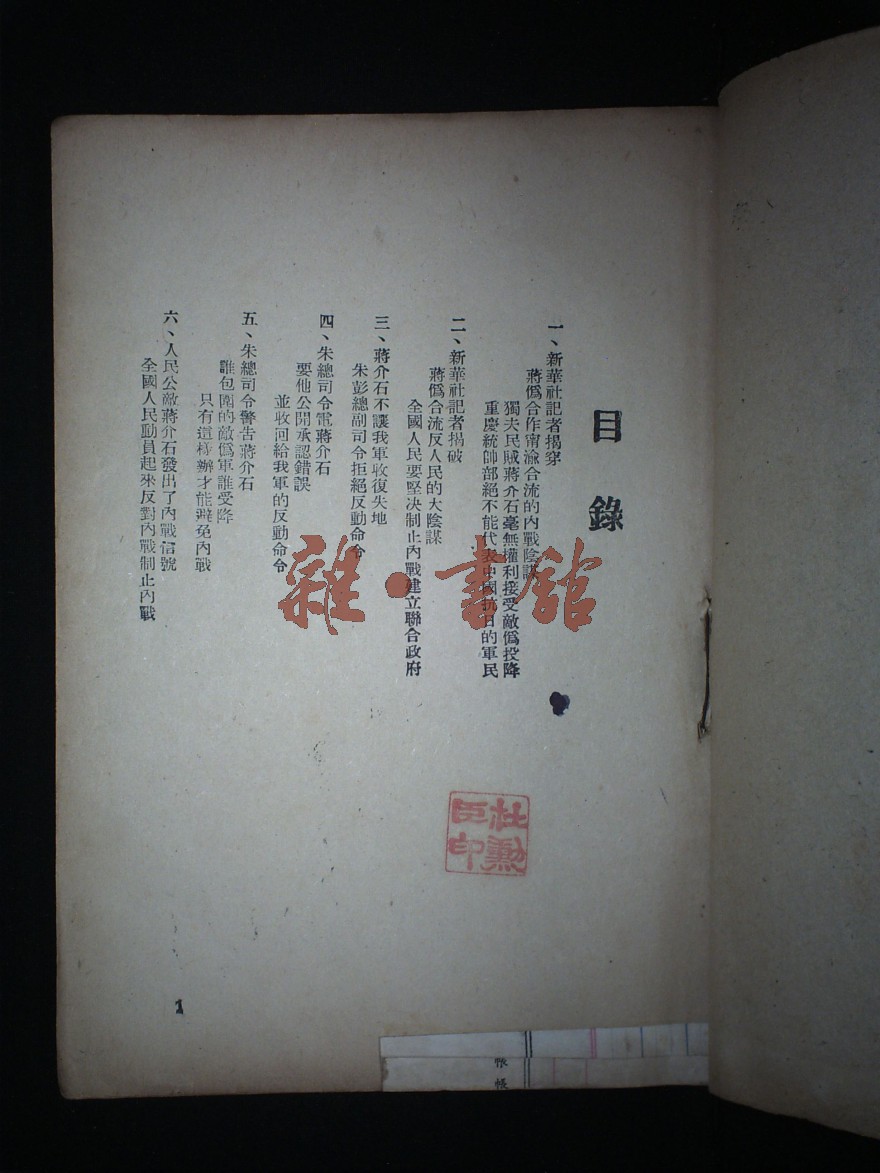 目錄
一、新華社記者揭穿
蔣僞合作甯渝合流的內戰陰謀
獨夫民賊蔣介石毫無權利接受敵僞投降
重慶統帥部絕不能代表中國抗日的軍民
二、新華社記者揭破
蔣僞合流反人民的大陰謀
全國人民要堅決制止內戰建立聯合政府
三、蔣介石不讓我軍收復失地
朱彭總副司令拒絕反動命令
四、朱總司令電蔣介石
要他公開承認錯誤
並收回給我軍的反動命令
五、朱總司令警告蔣介石
誰包圍的敵僞軍誰受降
只有這樣辦才能避免內戰
六、人民公敵蔣介石發出了內戰信號
全國人民動員起來反對內戰制止內戰
雜·書館
杜勳
臣印
1
帳 帳